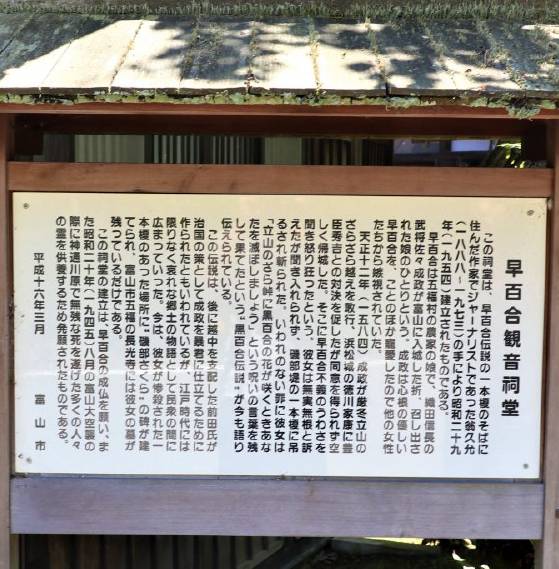 早百合観音祠堂
この祠堂は、早百合伝説の一本榎のそばに
住んだ作家でジャーナリストであった翁久允
(一八八八〜一九七三)の手により昭和二十九
年(一九五四)建立されたものである。
早百合は五福村の農家の娘で、織田信長の
武将佐々成政が富山に入城した折、召し出さ
れた娘のひとりという。成政は心根の優しい
早百合を、ことのほか寵愛したので他の女性
たちから嫉視されていた。
天正十二年(一五八四)、成政が厳冬立山の
ざらざら越えを敢行、浜松城の徳川家康に豊
臣秀吉との対決を促したが同意を得られず空
しく帰城した。そこに早百合不義のうわさを
聞き怒り狂ったという。彼女は事実無根と訴
えたが聞き入れられず、磯部堤の一本榎に吊
るされ斬られた。いわれのない罪に彼女は
「立山のざら峠に黒百合の花が咲くときあな
たを滅ぼしましょう」という呪いの言葉を残
して果てたという。"黒百合伝説"が今も語り
伝えられている。
この伝説は、後に越中を支配した前田氏が
治国の策として成政を暴君に仕立てるために
作られたともいわれているが、江戸時代には
限りなく哀れな郷土の物語として民衆の間に
広まっていった。今は、彼女が惨殺された一
本榎のあった場所に、磯部さくら"の碑が建
てられ、富山市五福の長光寺には彼女の墓が
残っているだけである。
この祠堂の建立は、早百合の成仏を願い、ま
た昭和二十年(一九四五)八月の富山大空襲の
際に神通川原で無残な死を遂げた多くの人々
の霊を供養するため発願されたものである。
平成十六年三月
富山市